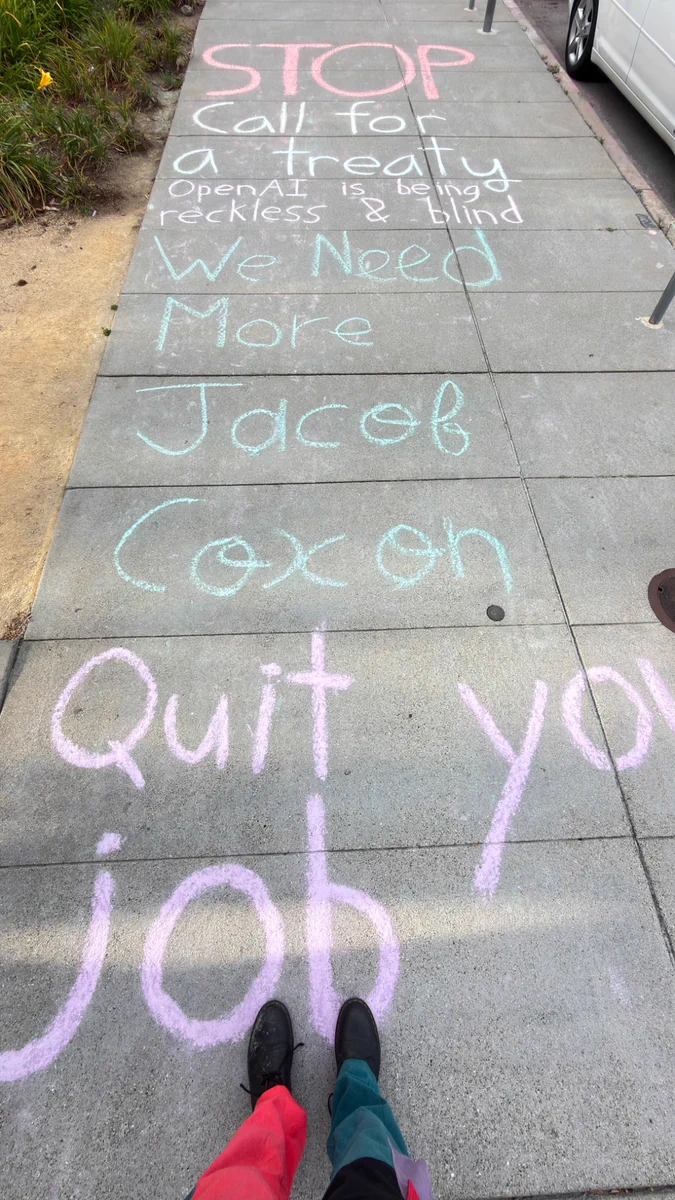 STOP
Call for
a treaty
OpenAI is being
reckless & blind
We Need
More
Jacob
Coxon
Quit you
job